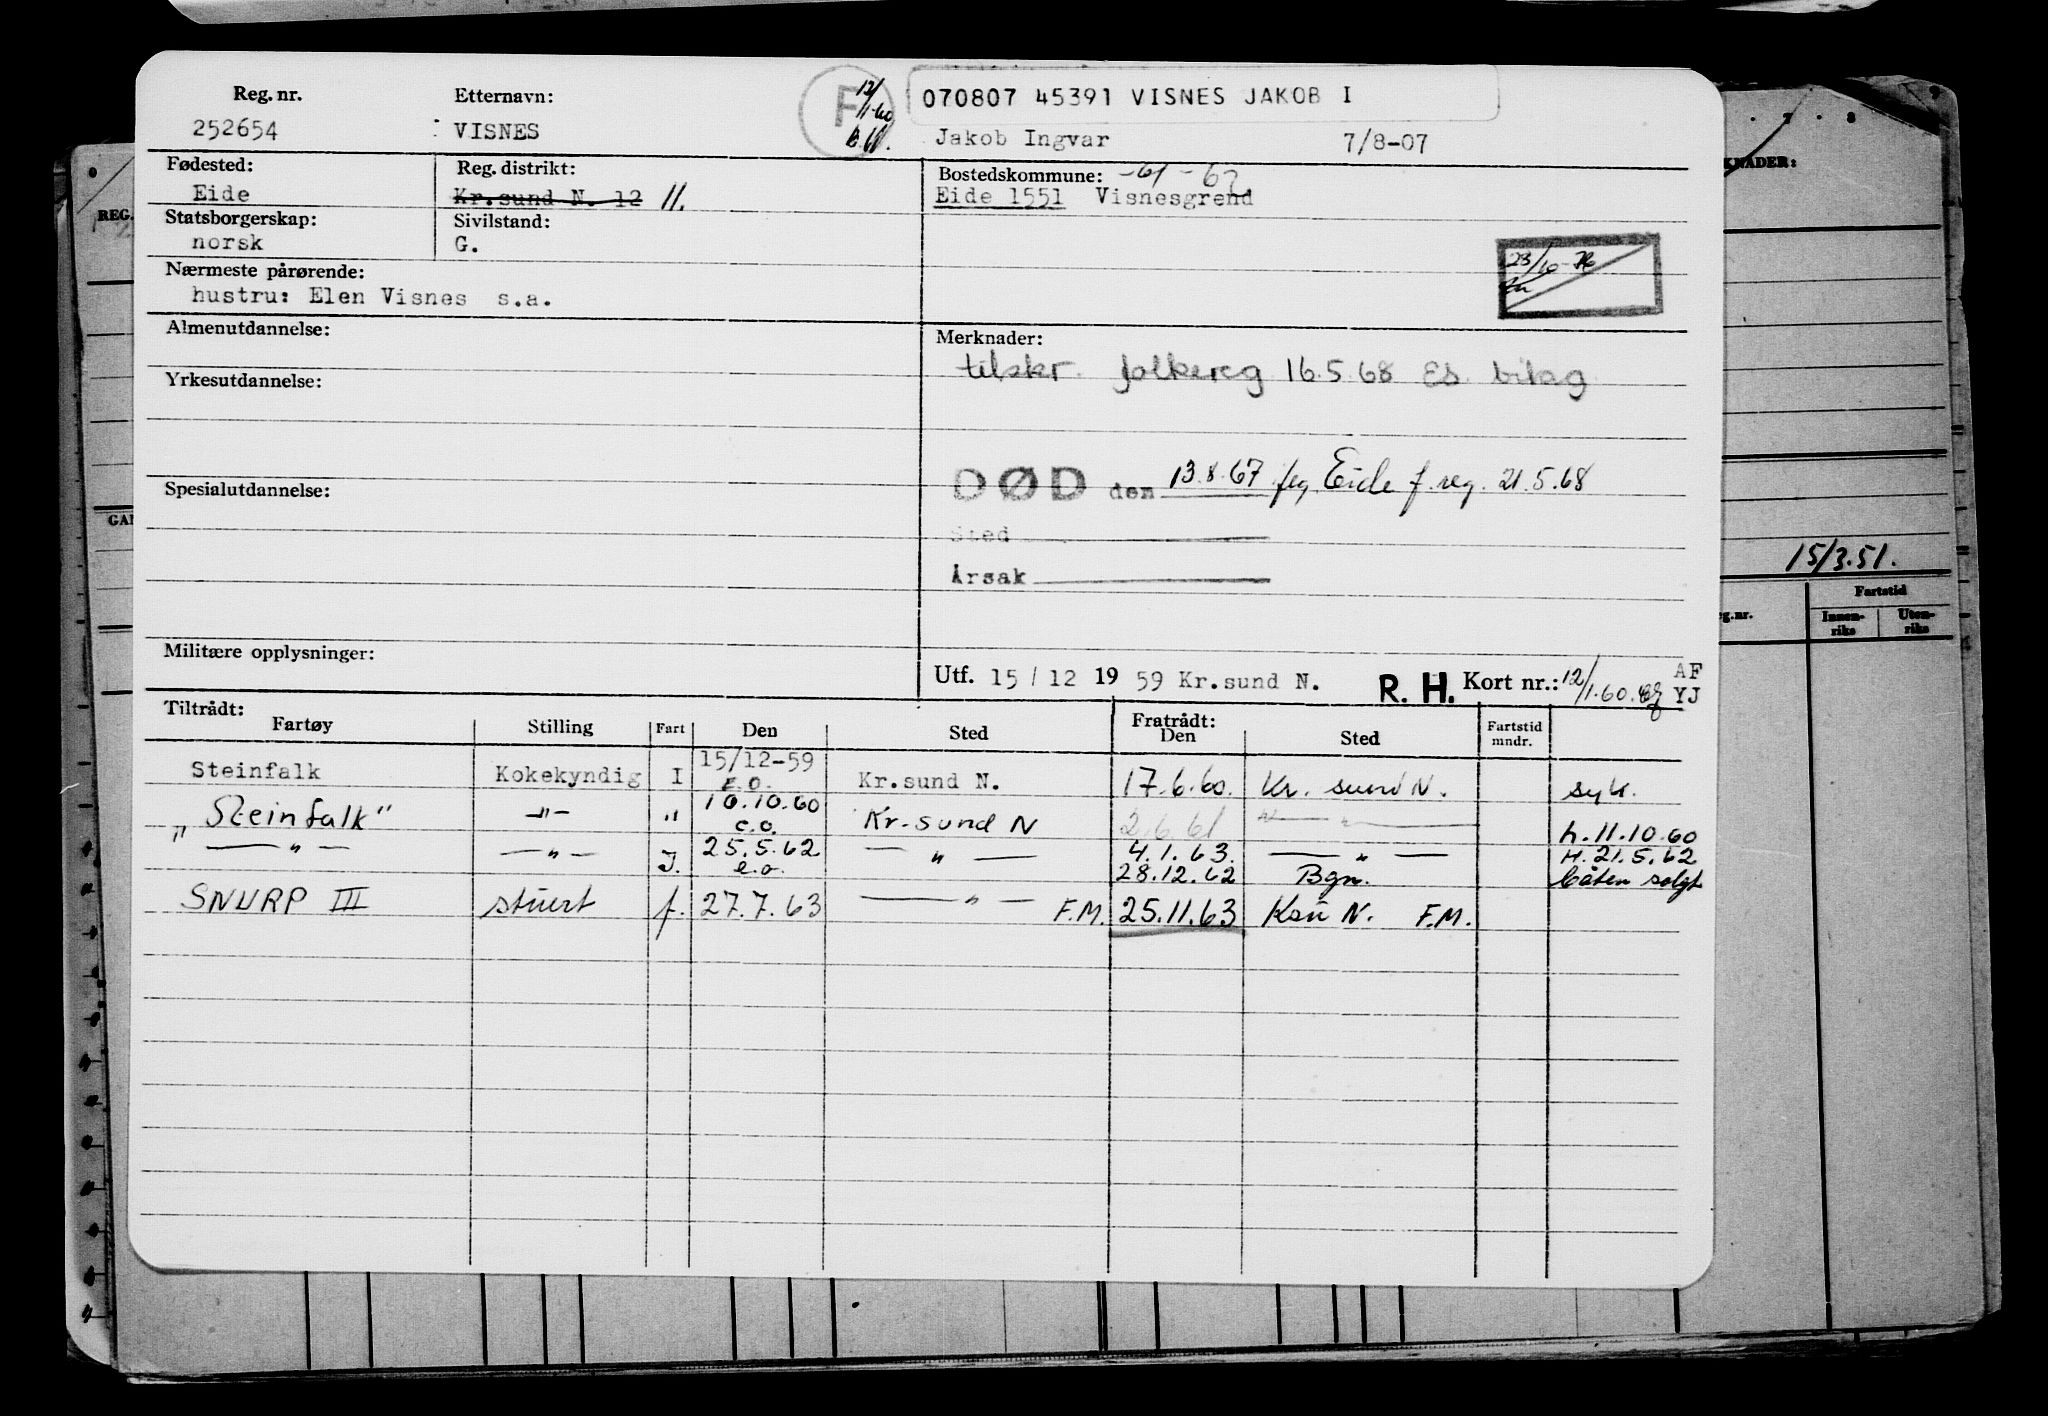 Reg. nr. Etternavn: F 12/1-60 070807 45391 VISNES JAKOB I
252654 VISNES Jakob Ingvar 7/8-07
Fødested: Reg. distrikt: Bostedskommune: -61-67
Eide Kr.sund N. 12 11. Eide 1551 Visnesgrend
Statsborgerskap: Sivilstand:
norsk G.
Nærmeste pårørende: 23/10-76
hustru: Elen Visnes s.a.
Almenutdannelse: Merknader:
tilskr. folkereg 16.5.68 Es. bilag
Yrkesutdannelse:
DØD den 13.8.67 flg. Eide f.reg. 21.5.68
Spesialutdannelse:
Sted
Årsak
15/3.51.
Fartstid
g.nr. Innen-riks Uten-riks
Militære opplysninger:
Utf. 15/12 1959 Kr.sund N. R. H. Kort nr.: 12/1.60. AF YJ
Tiltrådt: Fratrådt:
Fartøy Stilling Fart Den Sted Den Sted Fartstid mndr.
Steinfalk Kokekyndig I 15/12-59 E.O. Kr.sund N. 17.6.60. Kr. sund N. syk.
"Steinfalk" -"- " 10.10.60 e.o. Kr.sund N 2.6.61 -"- h.11.10.60
" -"- -"- I. 25.5.62 e.o. -"- 4.1.63. -"- H.21.5.62
28.12.62 Bgn. båten solgt
SNURP III stuert f. 27.7.63 -"- F.M. 25.11.63 Ksu N. F.M.
KNADER:
REG.
GAN